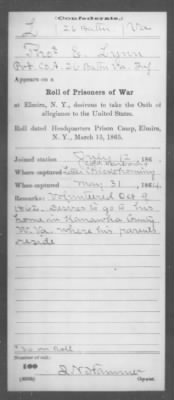 (Confederate.)
L 26 Battn. Va
Thos. E. Lynn
Pvt. Co. A 26 Battn Va Inf
Appears on a
Roll of Prisoners of War
at Elmira, N. Y., desirous to take the Oath of
allegiance to the United States.
Roll dated Headquarters Prison Camp, Elmira,
N. Y., March 15, 1865.
Joined station July 12, 186
Where captured Chickahominy
When captured May 31, 1864.
Remarks: Volunteered Oct 9
1862. Desires to go to his
home in Kanawha County
W. Va. where his parents
reside
on Roll
Number of roll:
100
Copyist.